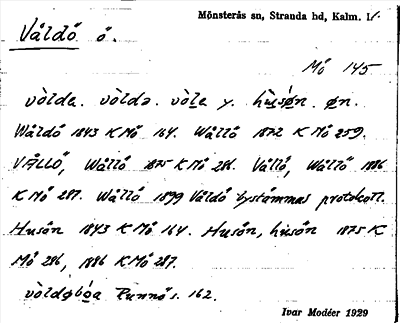 Mönsterås sn, Stranda hd, Kalm. l.
Våldö ö.
Mö 145
vòlda. vòldə. vòlə y. hùsǿn. øn.
Wåldö 1843 K Mö 164. Wållö 1872 K Mö 259.
VÅLLÖ, Wållö 1875 K Mö 286. Vållö, Wållö 1886
K Mö 287. Wållö 1899 Våldö bystämmas protokoll.
Husön 1843 K Mö 164. Husön, husön 1875 K
Mö 286, 1886 K Mö 287.
Runnö s. 162.
Ivar Modéer 1929